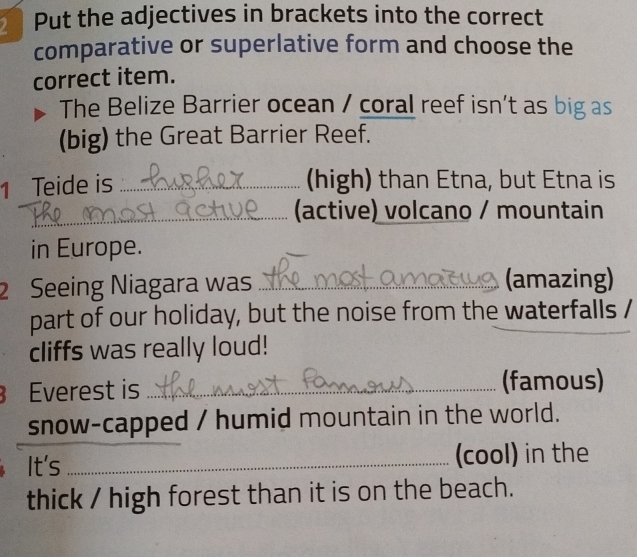 2 Put the adjectives in brackets into the correct
comparative or superlative form and choose the
correct item.
▶ The Belize Barrier ocean / coral reef isn't as big as
(big) the Great Barrier Reef.
1 Teide is higher (high) than Etna, but Etna is
The most active (active) volcano / mountain
in Europe.
2 Seeing Niagara was the most amazing (amazing)
part of our holiday, but the noise from the waterfalls /
cliffs was really loud!
3 Everest is the most famous (famous)
snow-capped / humid mountain in the world.
It's (cool) in the
thick / high forest than it is on the beach.